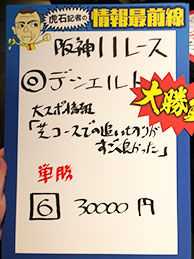 虎石記者の情報最前線
阪神11レース
◎デシエルト
大スポ情報
「芝コースでの追い切りが
すご良かった」
大勝
単勝
6 30000円